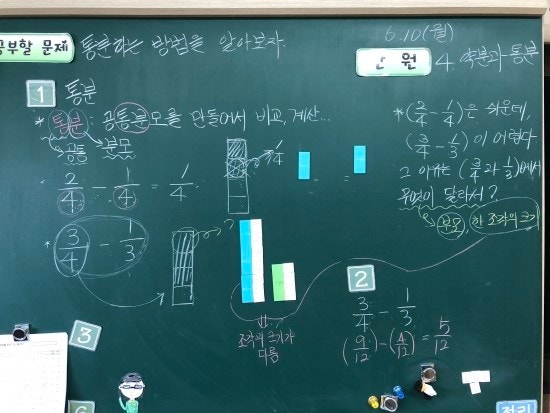 공부할 문제 통분하는 방법을 알아보자.
6.10(월)
단원 4. 약분과 통분
1 통분
* 통분: 공통분모를 만들어서 비교, 계산...
공통 분모
2/4 - 1/4 = 1/4
1/4
* 3/4 - 1/3
?
조각의 크기가
다름
* (2/4 - 1/4)은 쉬운데,
(3/4 - 1/3)이 어렵다
그 이유는 (3/4과 1/3)에서
무엇이 달라서?
분모, 한 조각의 크기
2
3/4 - 1/3
(9/12) - (4/12) = 5/12
3
정리